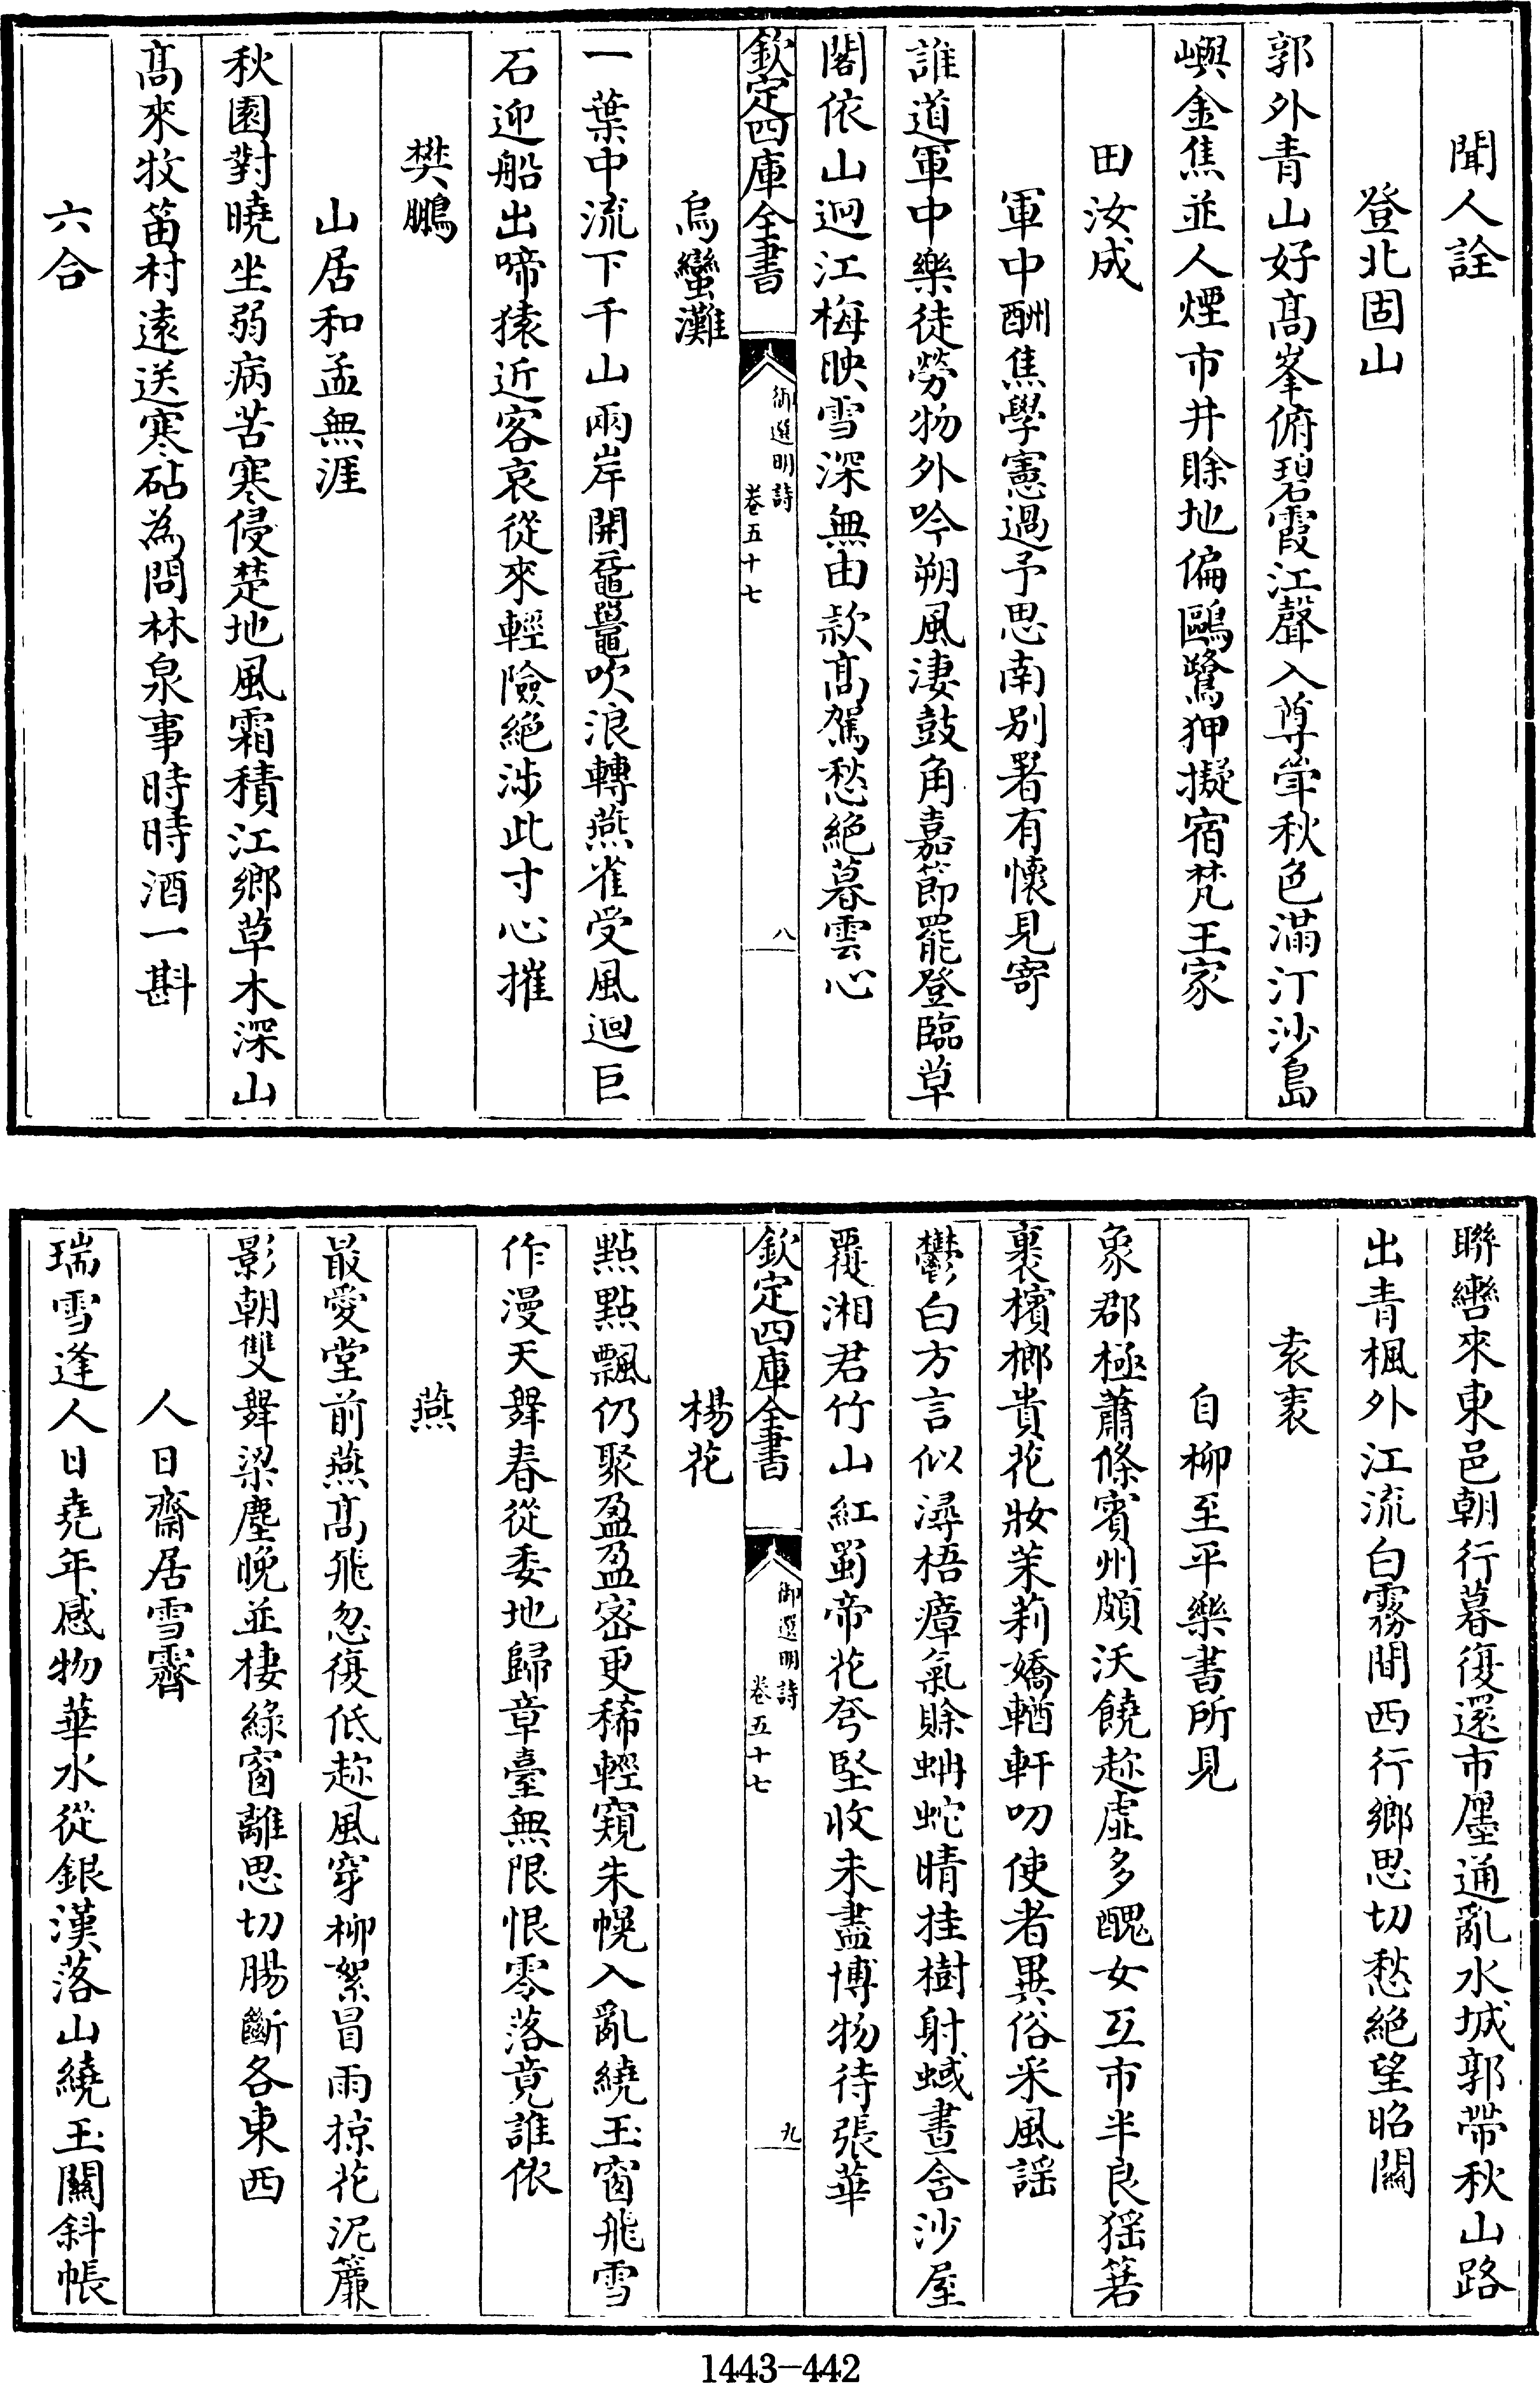 聞人詮
登北固山
郭外青山好髙峯俯碧霞江聲入尊斝秋色滿汀沙島
嶼金焦並人煙市井賖地偏鷗鷺狎擬宿梵王家
田汝成
軍中酬焦學憲過予思南别署有懷見寄
誰道軍中樂徒勞物外吟朔風淒鼓角嘉節罷登臨草
閣依山迥江梅映雪深無由款髙駕愁絶暮雲心
欽定四庫全書
御選明詩
卷五十七
八
烏蠻灘
一葉中流下千山兩岸開黿鼉吹浪轉燕雀受風迴巨
石迎船出啼猿近客哀從來輕險絶涉此寸心摧
樊鵬
山居和孟無涯
秋園對曉坐弱病苦寒侵楚地風霜積江鄉草木深山
髙來牧笛村遠送寒砧為問林泉事時時酒一斟
六合
聯轡來東邑朝行暮復還市廛通亂水城郭帶秋山路
出青楓外江流白霧間西行鄉思切愁絶望昭關
袁袠
自柳至平樂書所見
象郡極蕭條賓州頗沃饒趂虛多醜女互市半良猺箬
裹檳榔貴花妝茉莉嬌輶軒叨使者異俗采風謡
鬱白方言似潯梧瘴氣賖蚺蛇晴挂樹射蜮晝含沙屋
覆湘君竹山紅蜀帝花兮堅收未盡博物待張華
欽定四庫全書
御選明詩
卷五十七
九
楊花
點點飄仍聚盈盈宻更稀輕窺朱幌入亂繞玉窗飛雪
作漫天舞春從委地歸章臺無限恨零落竟誰依
燕
最愛堂前燕髙飛忽復低趂風穿柳絮冒雨掠花泥簾
影朝雙舞梁塵晚並棲綠窗離思切腸斷各東西
人日齋居雪霽
瑞雪逢人日堯年感物華水從銀漢落山繞玉關斜帳
1443-442